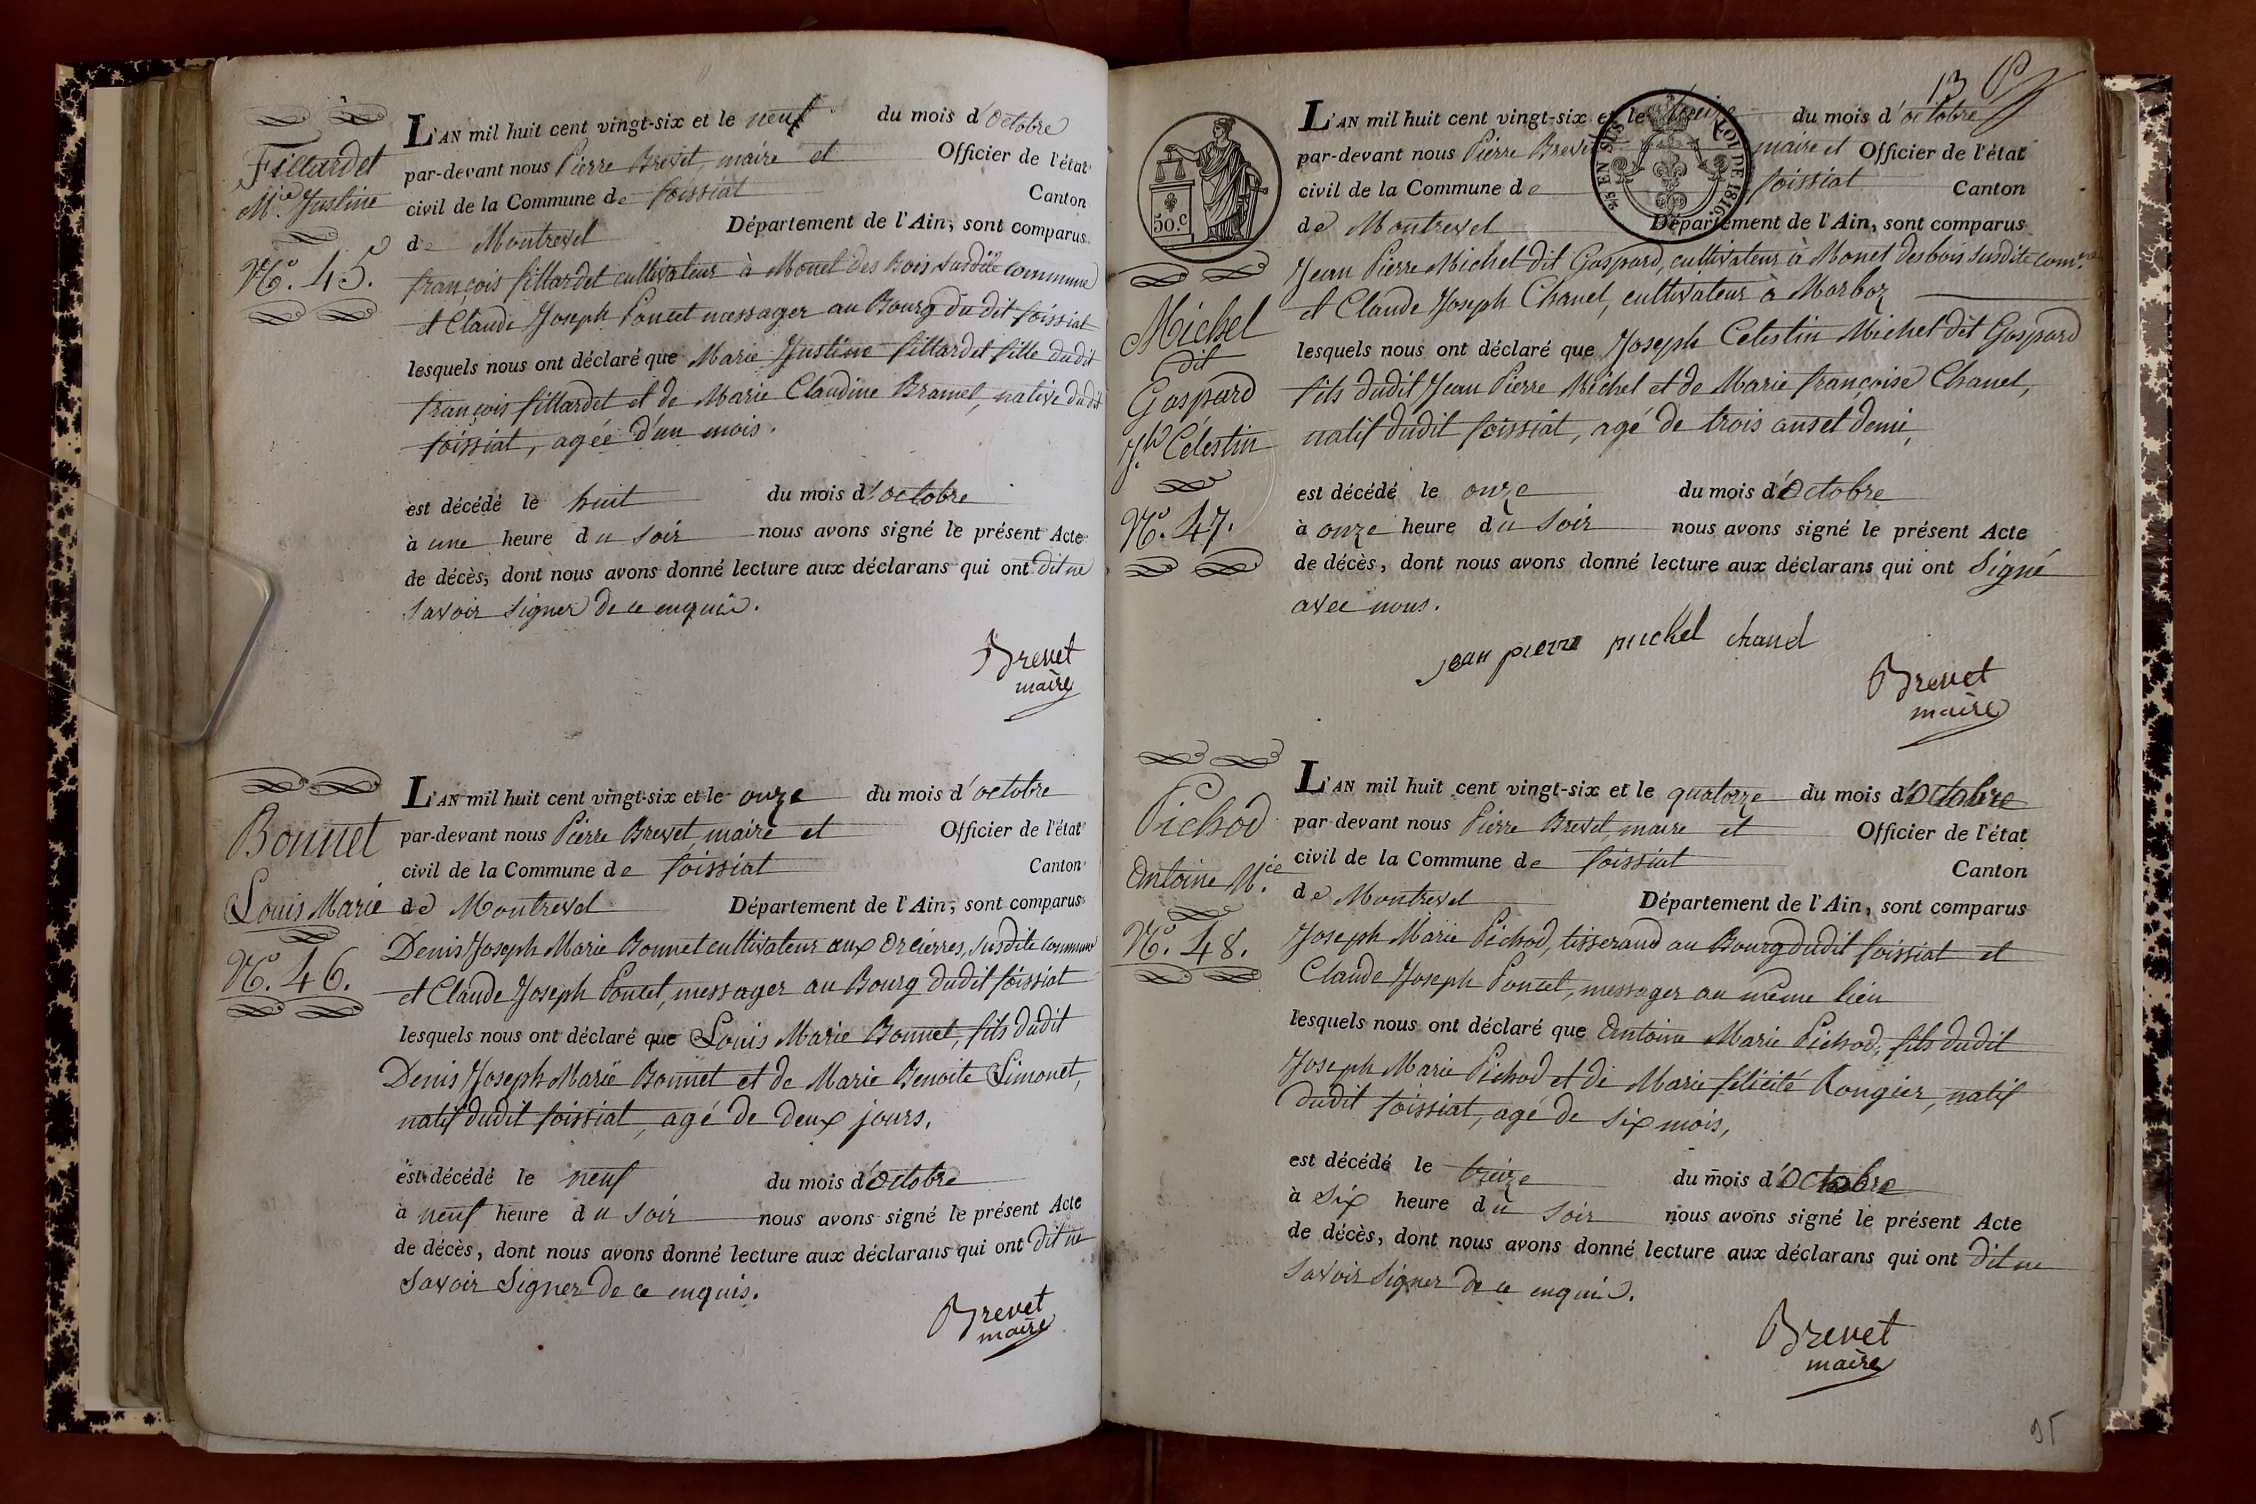 Fillardet
M.ie Justine
N.o 45.
L'AN mil huit cent vingt-six et le neuf du mois d'octobre
par-devant nous Pierre Brevet, maire et Officier de l'état
civil de la Commune de foissiat Canton
de Montrevel Département de l'Ain, sont comparus
françois fillardet cultivateur à Monet des Bois susdite commune
et Claude Joseph Poncet messager au Bourg du dit foissiat
lesquels nous ont déclaré que Marie Justine fillardet fille dudit
françois fillardet et de Marie Claudine Bramet, native dudit
foissiat, agée d'un mois.
est décédé le huit du mois d'octobre
à une heure du soir nous avons signé le présent Acte
de décès, dont nous avons donné lecture aux déclarans qui ont dit ne
savoir signer de ce enquis.
Brevet
maire
Bonnet
Louis Marie
N.o 46.
L'AN mil huit cent vingt-six et le onze du mois d'octobre
par-devant nous Pierre Brevet, maire et Officier de l'état
civil de la Commune de foissiat Canton
de Montrevel Département de l'Ain, sont comparus
Denis Joseph Marie Bonnet cultivateur aux Orcières, susdite commune
et Claude Joseph Poncet, messager au Bourg dudit foissiat
lesquels nous ont déclaré que Louis Marie Bonnet, fils dudit
Denis Joseph Marie Bonnet et de Marie Benoite Simonet,
natif dudit foissiat, agé de deux jours.
est décédé le neuf du mois d'octobre
à neuf heure du soir nous avons signé le présent Acte
de décès, dont nous avons donné lecture aux déclarans qui ont dit ne
savoir signer de ce enquis.
Brevet
maire
13
50.c
25 EN SUS LOI DE 1816.
Michel
dit
Gaspard
J.h Celestin
N.o 47.
L'AN mil huit cent vingt-six et le treize du mois d'octobre
par-devant nous Pierre Brevet maire et Officier de l'état
civil de la Commune de foissiat Canton
de Montrevel Département de l'Ain, sont comparus
Jean Pierre Michel dit Gaspard, cultivateur à Monet des bois susdite com.ne
et Claude Joseph Chanel, cultivateur à Marboz
lesquels nous ont déclaré que Joseph Celestin Michel dit Gaspard
fils dudit Jean Pierre Michel et de Marie françoise Chanel,
natif dudit foissiat, agé de trois ans et demi,
est décédé le onze du mois d'Octobre
à onze heure du soir nous avons signé le présent Acte
de décès, dont nous avons donné lecture aux déclarans qui ont signé
avec nous.
jean pierre michel chanel
Brevet
maire
Pichod
Antoine M.ie
N.o 48.
L'AN mil huit cent vingt-six et le quatorze du mois d'Octobre
par-devant nous Pierre Brevet, maire et Officier de l'état
civil de la Commune de foissiat Canton
de Montrevel Département de l'Ain, sont comparus
Joseph Marie Pichod, tisserand au Bourg dudit foissiat et
Claude Joseph Poncet, messager au même lieu
lesquels nous ont déclaré que Antoine Marie Pichod, fils dudit
Joseph Marie Pichod et de Marie félicité Rongier, natif
dudit foissiat, agé de six mois,
est décédé le treize du mois d'Octobre
à six heure du soir nous avons signé le présent Acte
de décès, dont nous avons donné lecture aux déclarans qui ont dit ne
savoir signer de ce enquis.
Brevet
maire